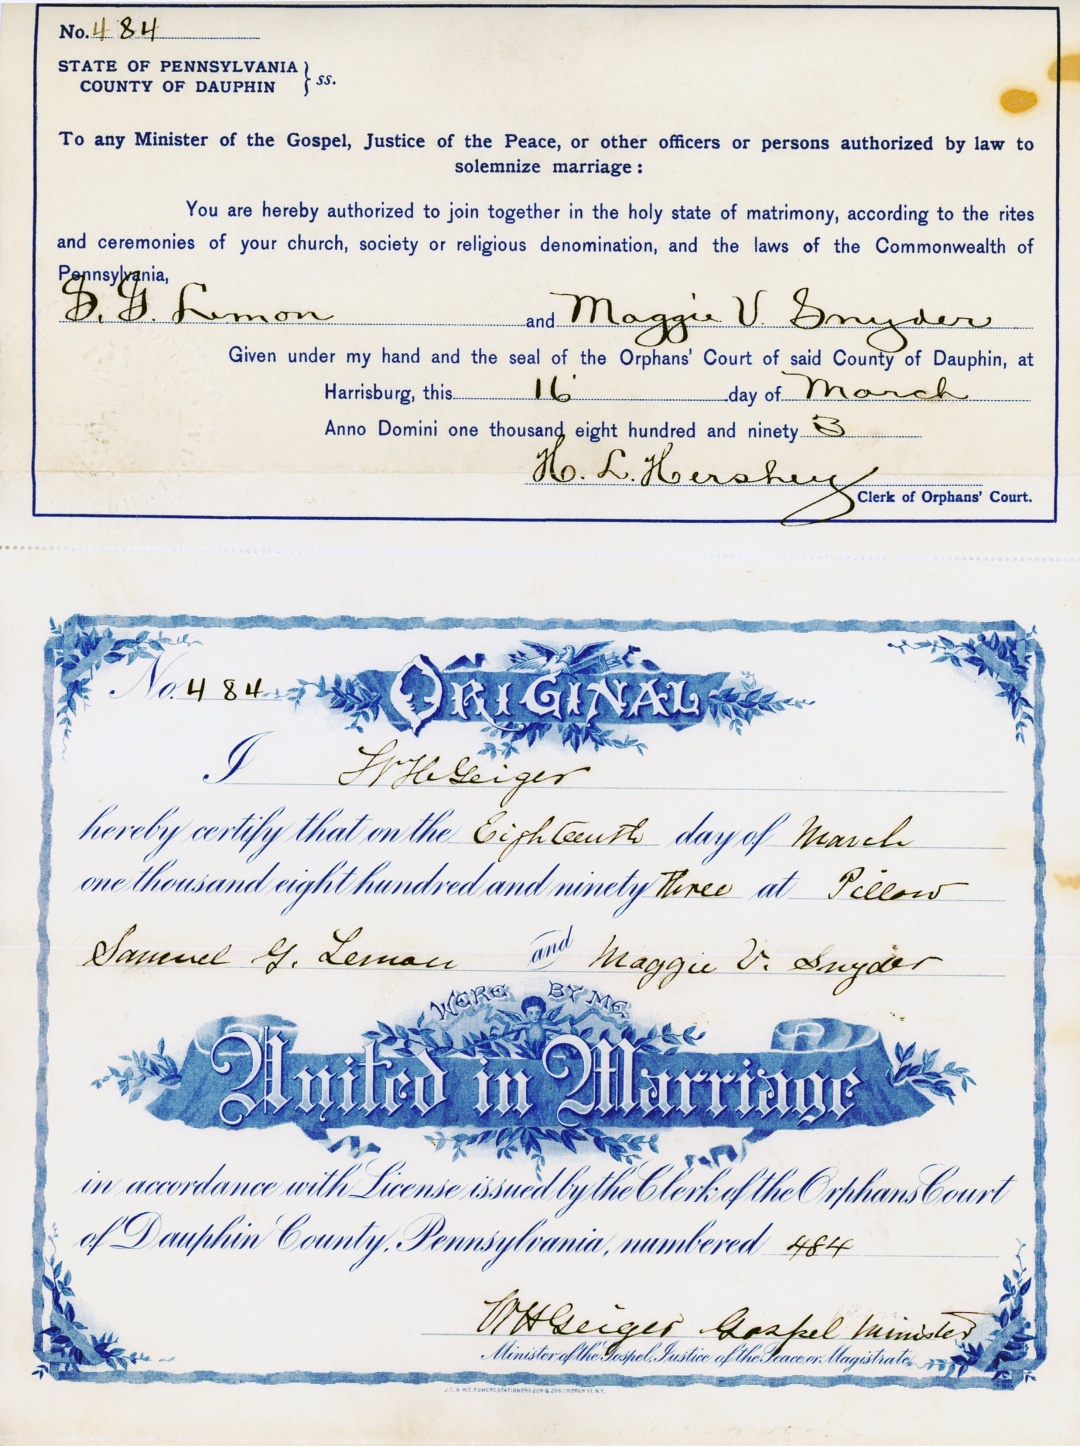 No. 484
STATE OF PENNSYLVANIA
COUNTY OF DAUPHIN } ss.
To any Minister of the Gospel, Justice of the Peace, or other officers or persons authorized by law to
solemnize marriage :
You are hereby authorized to join together in the holy state of matrimony, according to the rites
and ceremonies of your church, society or religious denomination, and the laws of the Commonwealth of
Pennsylvania,
S. G. Lemon and Maggie V. Snyder
Given under my hand and the seal of the Orphans' Court of said County of Dauphin, at
Harrisburg, this 16 day of March
Anno Domini one thousand eight hundred and ninety 3
H. L. Hershey
Clerk of Orphans' Court.
No. 484
ORIGINAL
I W H Geiger
hereby certify that on the Eighteenth day of March
one thousand eight hundred and ninety three at Pillow
Samuel G. Lemon and Maggie V. Snyder
WERE BY ME
United in Marriage
in accordance with License issued by the Clerk of the Orphans Court
of Dauphin County, Pennsylvania, numbered 484
W H Geiger Gospel Minister
Minister of the Gospel, Justice of the Peace or Magistrate.
J.C. & W.E. POWERS, STATIONERS 204 & 206 CHURCH ST. N.Y.